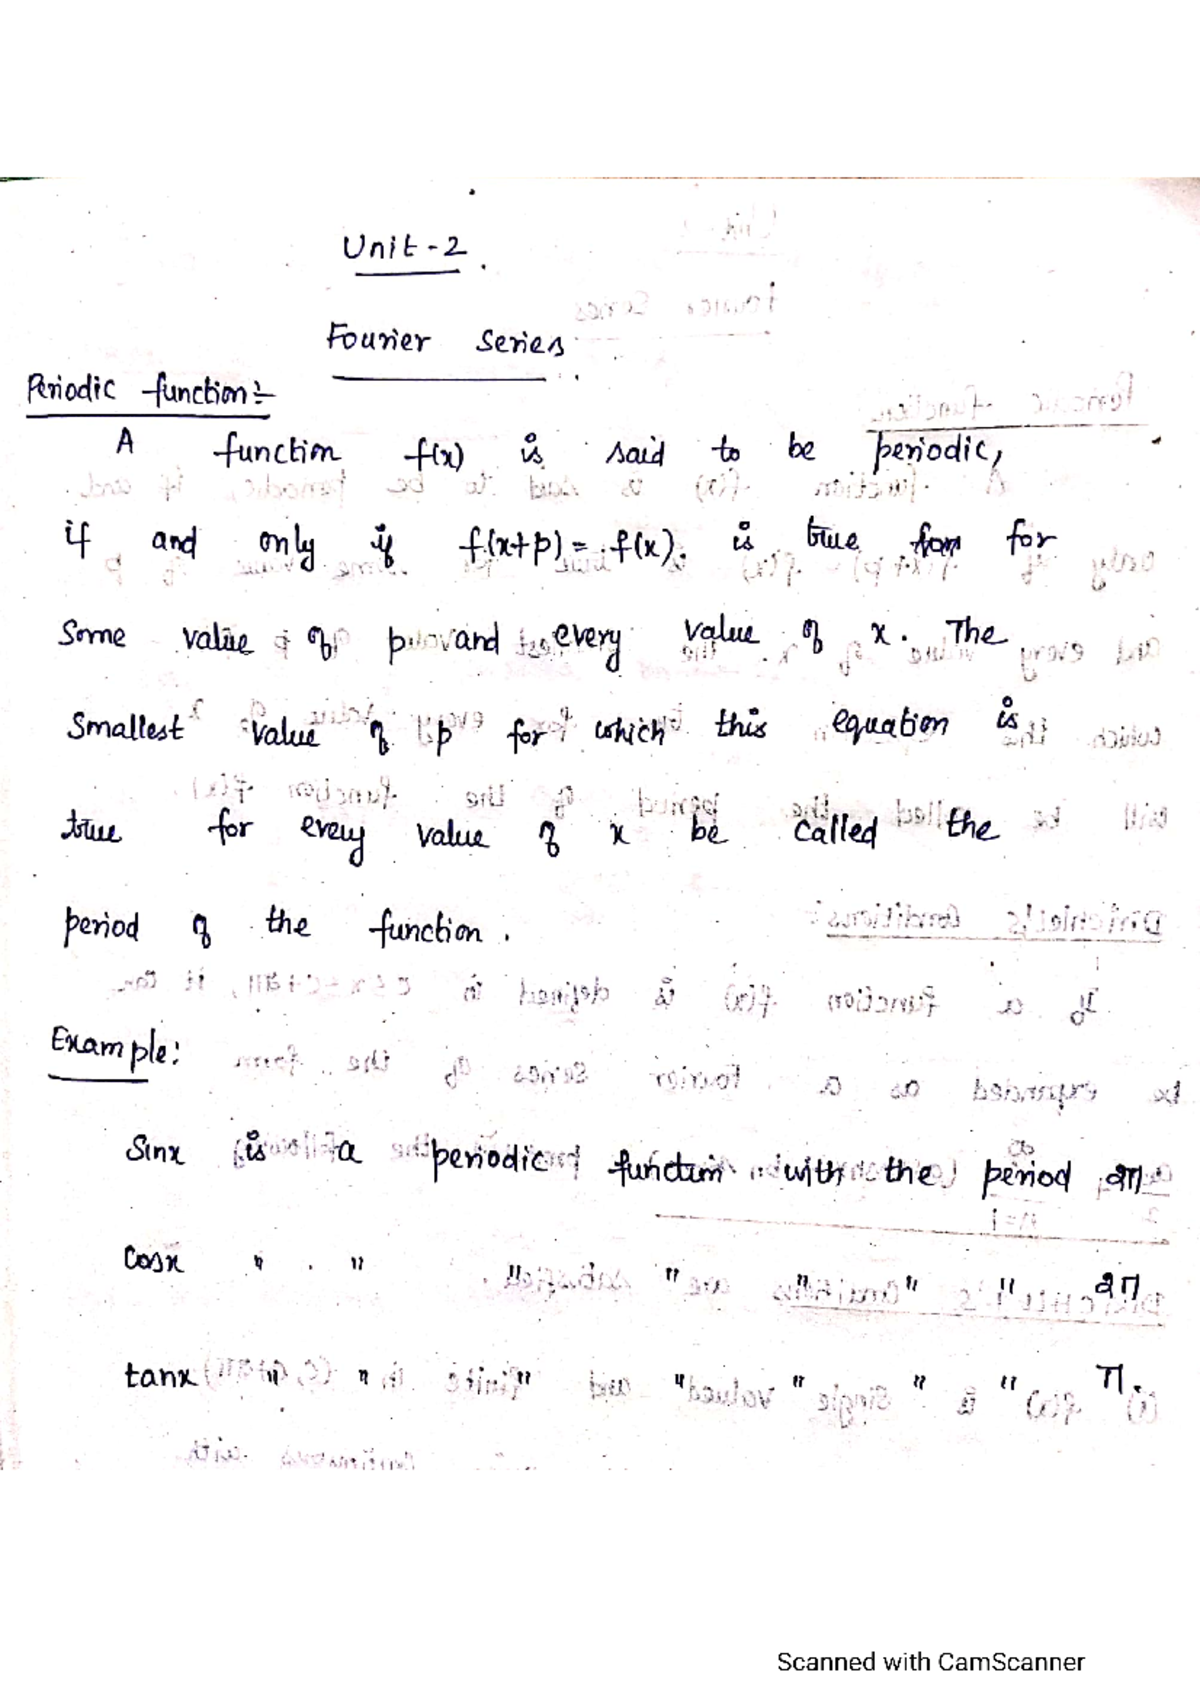 Unit-2.
Fourier Series.
Periodic function:-
A function f(x) is said to be periodic,
if and only if f(x+p) = f(x). is true for
Some value of p and every value of x. The
Smallest value of p for which this equation is
true for every value of x be called the
period of the function.
Example:
Sinx is a periodic function with the period 2π
Cosx " " " " " " 2π
tanx " " " " " " " π.
Scanned with CamScanner